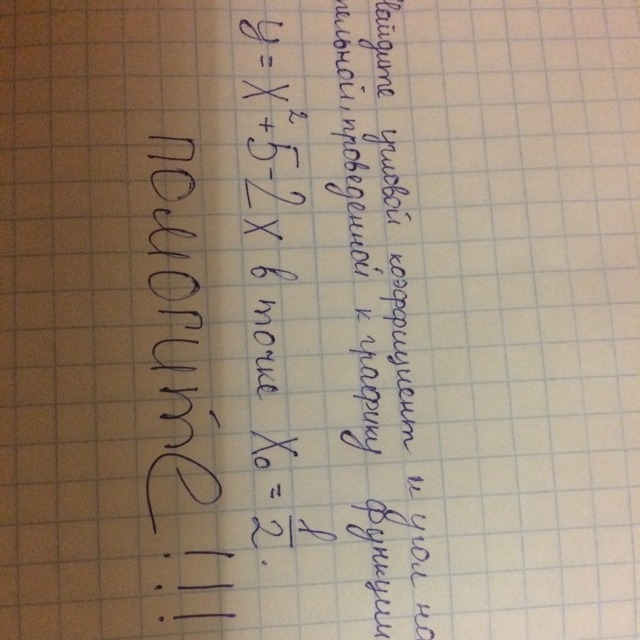 Найдите угловой коэффициент и угол на
тельной, проведенной к графику функции
y = x² + 5 - 2x в точке x₀ = 1/2.
помогите!!!